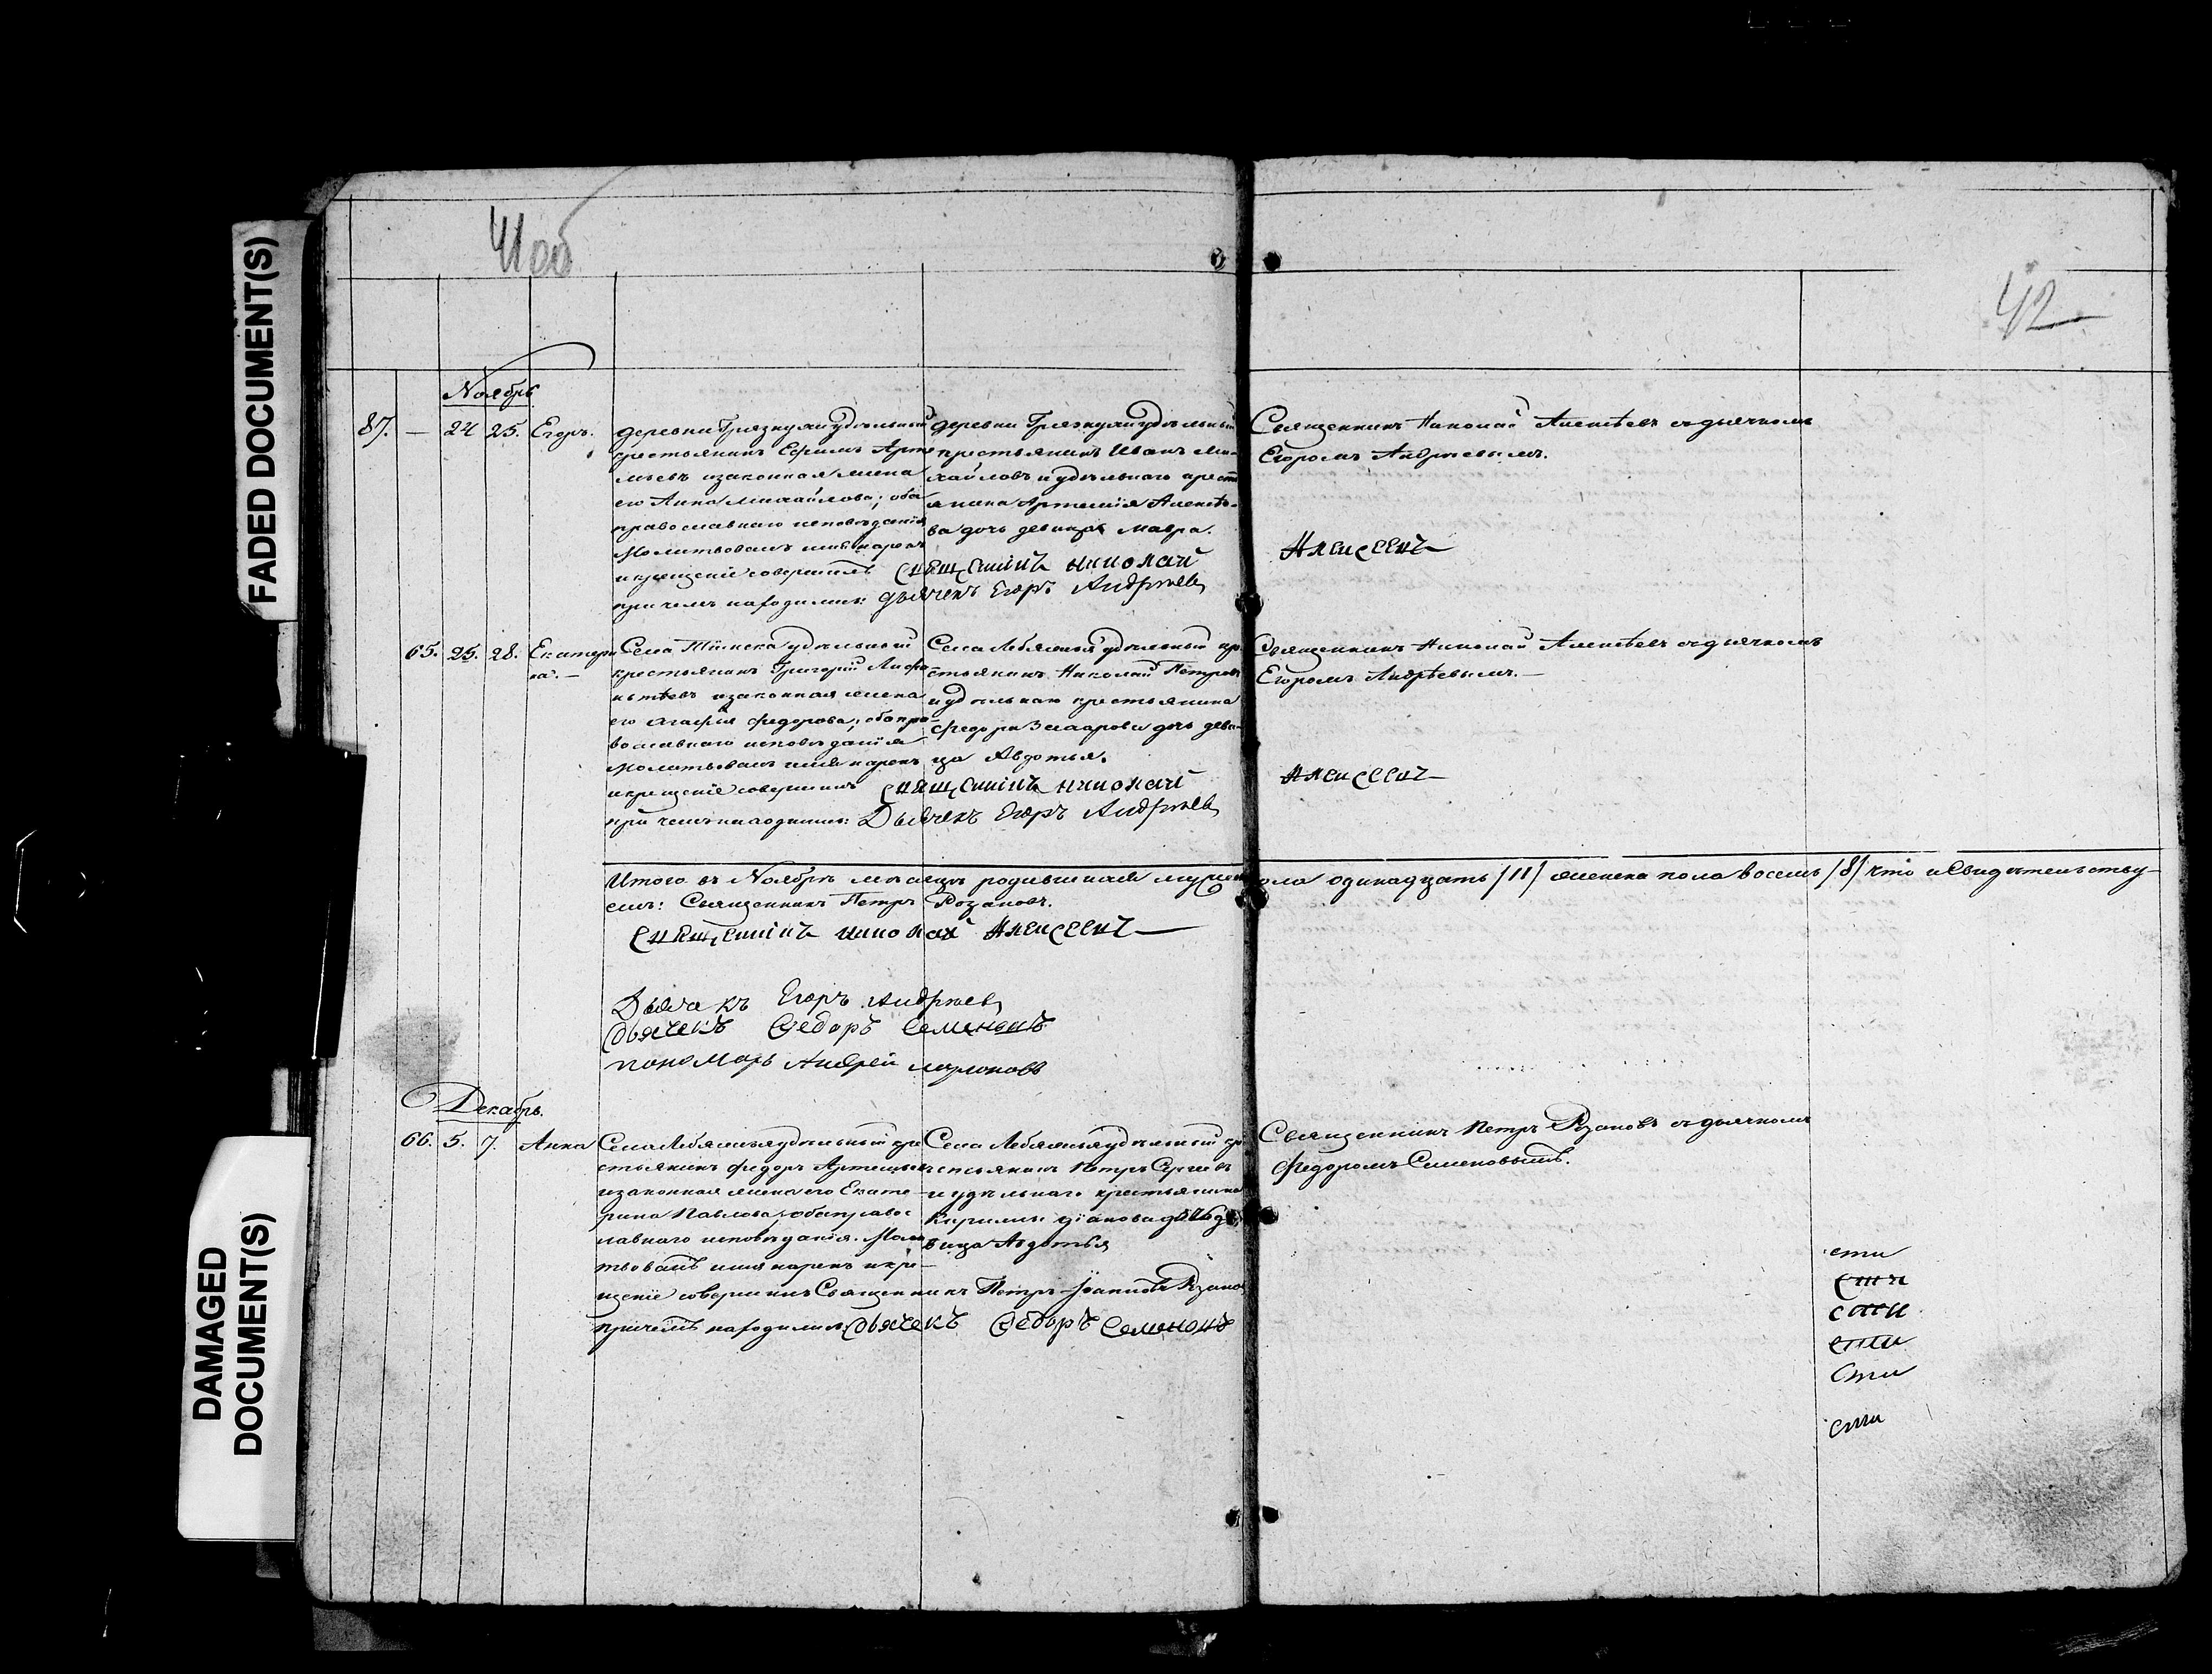 FADED DOCUMENT(S)
DAMAGED
DOCUMENT(S)
41 об
42
Ноябрь
87. — 24 25. Егоръ.
деревни Грязнухи удѣльный
крестьянинъ Ефимъ Арте
мьевъ и законная жена
его Анна Михайлова; оба
православнаго исповѣданія
Молитвовалъ имя нарекъ
и крещеніе совершилъ Священникъ Николай
при чемъ находились: дьячекъ Егоръ Андреевъ
деревни Грязнухи удѣльный
крестьянинъ Иванъ Ми-
хайловъ и удѣльнаго крест
янина Артемія Алексѣ-
ва дочь девица Мавра.
Священникъ Николай Алексѣевъ съ дьячкомъ
Егоромъ Андреевымъ.
Алексеевъ
65. 25. 28. Екатери
на. —
Села удѣльный
крестьянинъ Григорий
и законная жена
его Агафія Федорова; оба пра-
вославнаго исповѣданія
Молитвовалъ имя нарекъ
и крещеніе совершилъ Священникъ Николай
при чемъ находились: Дьячекъ Егоръ Андреевъ
Села Лебяжья удѣльный кр
стьянинъ Николай Петровъ
и удѣльнаго крестьянина
Федора Захарова дочь деви-
ца Авдотья.
Священникъ Николай Алексѣевъ съ дьячкомъ
Егоромъ Андрѣевымъ. —
Алексеевъ
Итого въ Ноябрѣ мѣсяцѣ родившихся мужеска пола одинадцать /11/ женска пола восемь /8/ что и свидѣтельству-
емъ: Священникъ Петръ Розановъ.
Священникъ Николай Алексеевъ
Дьячекъ Егоръ Андреевъ
Дьячекъ Федоръ Семеновъ
пономарь Андрей
Декабрь.
66. 5. 7. Анна
Села Лебяжья удѣльный кре
стьянинъ Федоръ
и законная жена его Екате-
рина Павлова; оба право-
славнаго исповѣданія. Моли
твовалъ имя нарекъ и кре-
щеніе совершилъ Священникъ Петръ Іоанновъ Розановъ
при чемъ находился дьячекъ Федоръ Семеновъ
Села Лебяжья удѣльный кр
стьянинъ Петръ Сергѣевъ
и удѣльнаго крестьянина
Кирилы дочь дѣ
вица Авдотья
Священникъ Петръ Розановъ съ дьячкомъ
Федоромъ Семеновымъ.
сти
сти
сти
сти
сти
сти